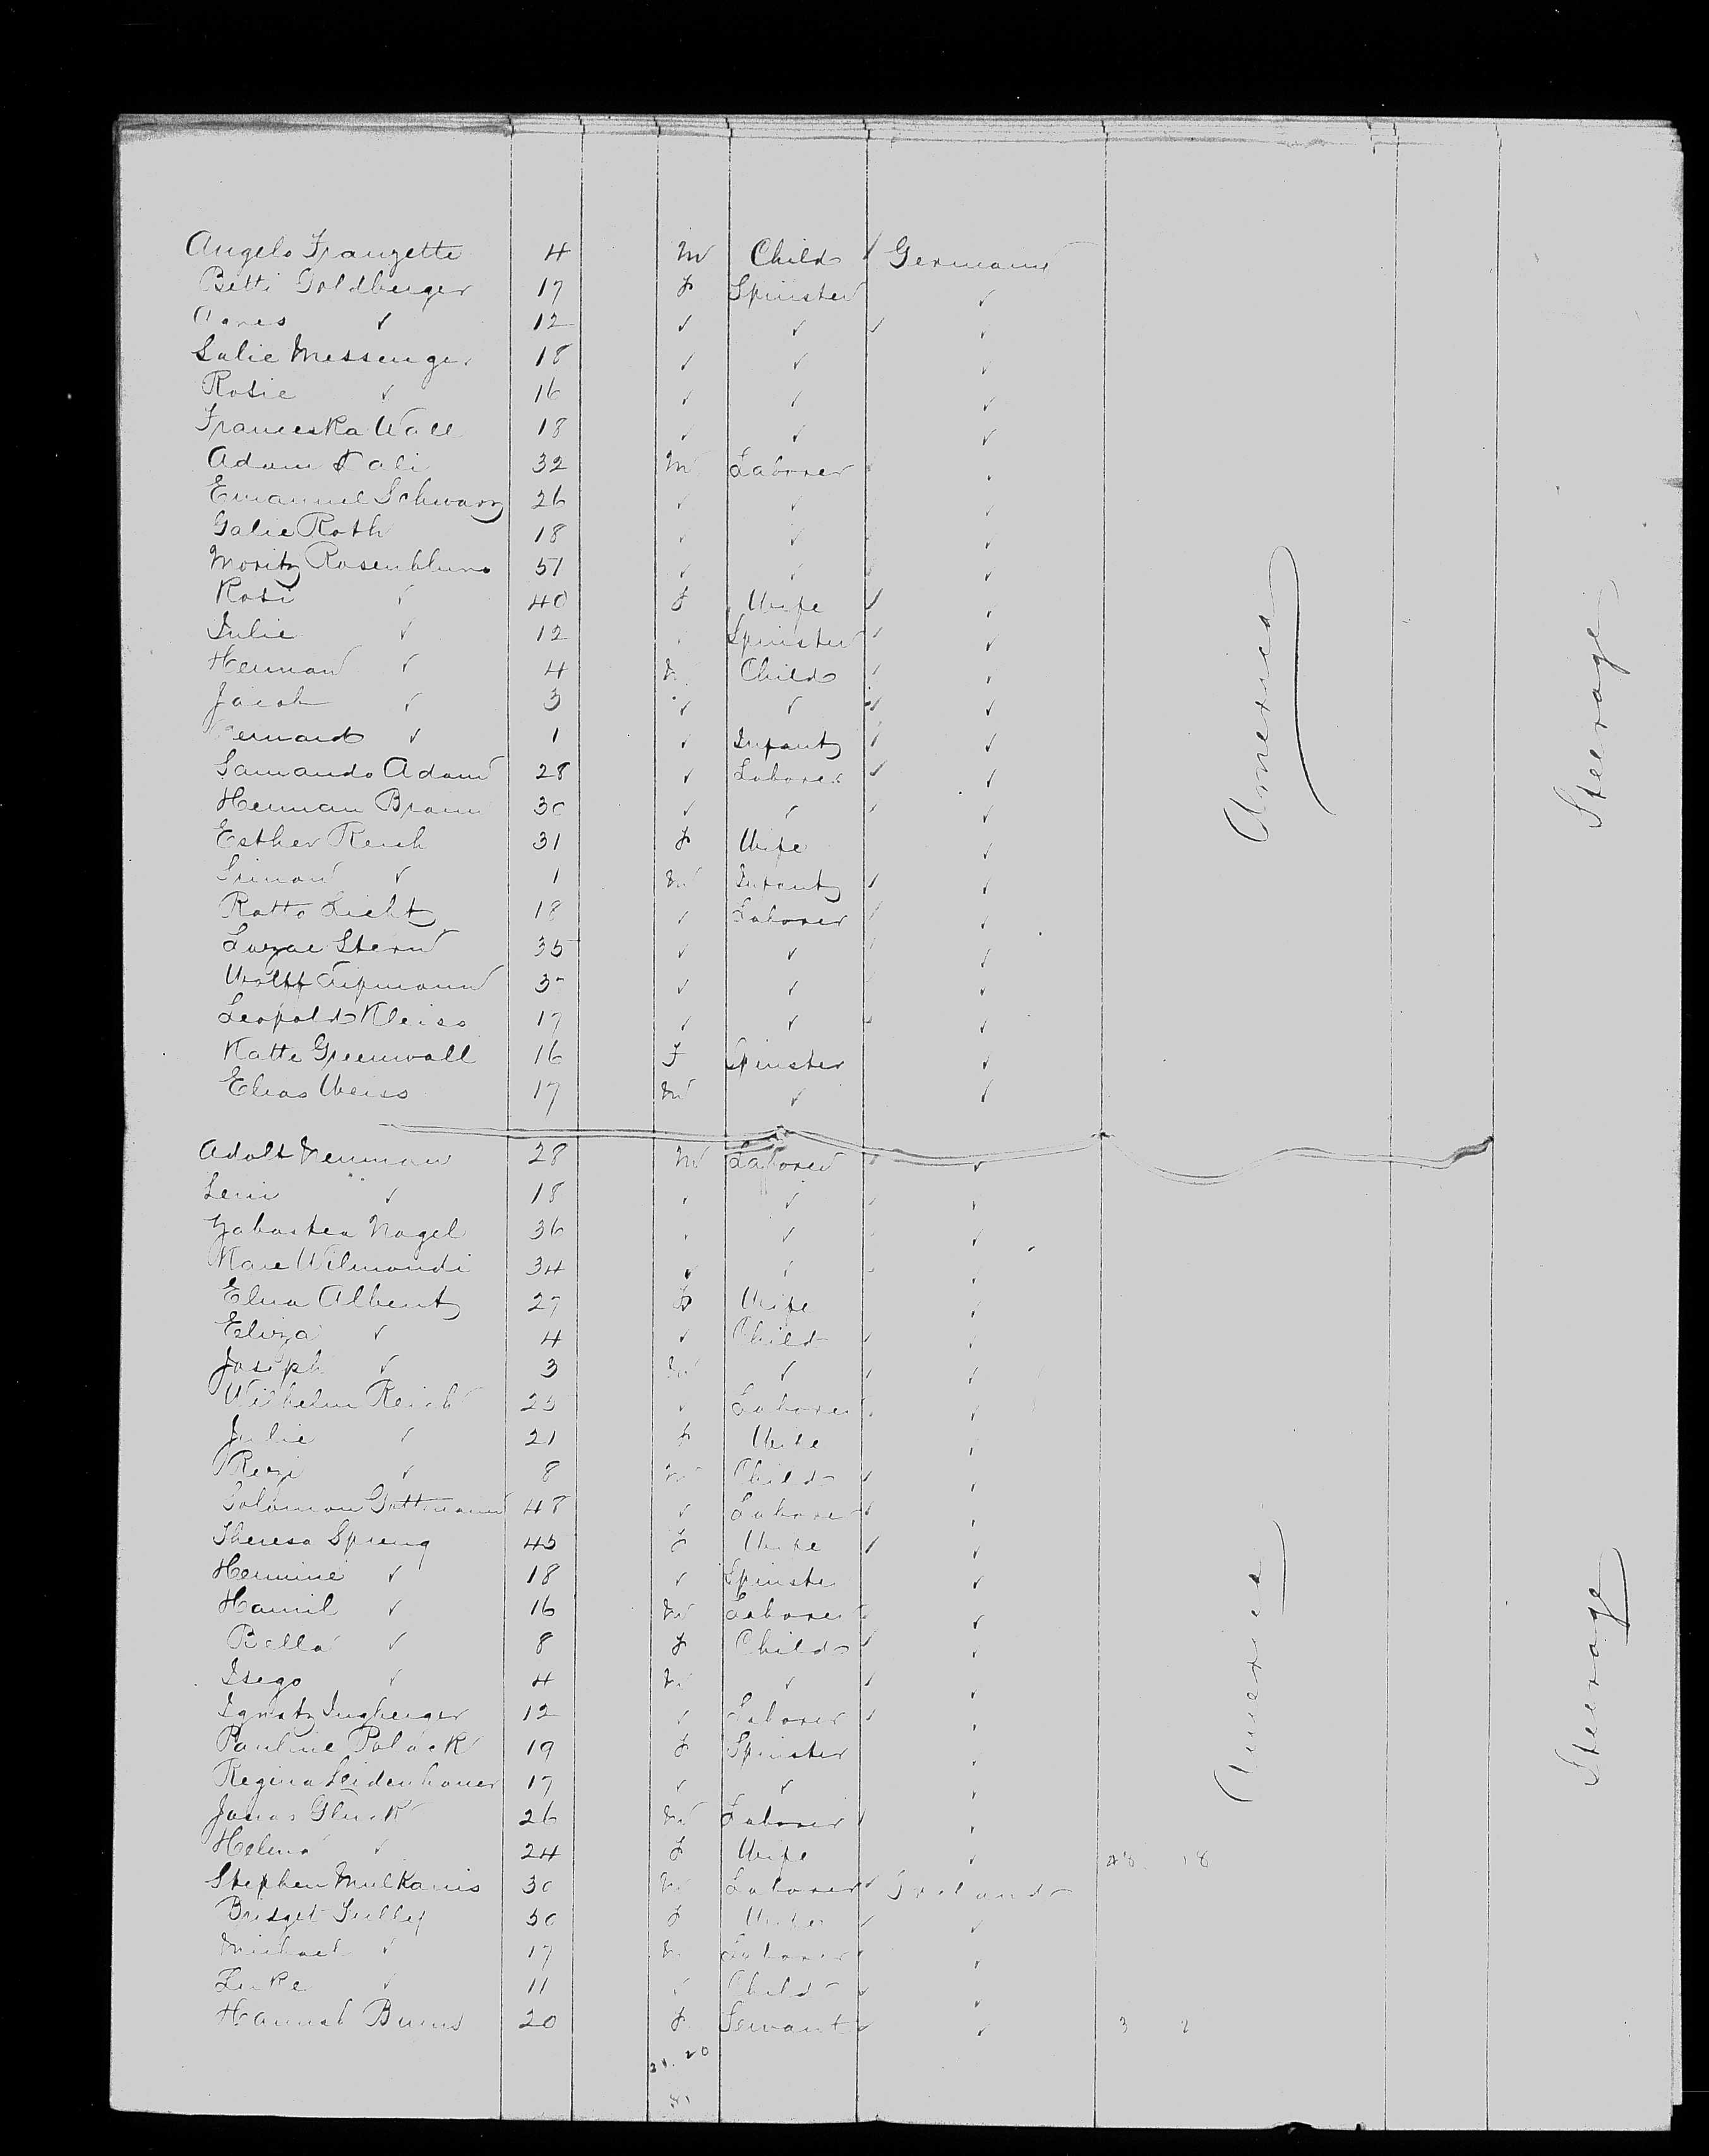 Angelo Franzette 4 m Child ✓ Germany
Betti Goldberger 17 f Spinster ✓
Agnes ✓ 12 ✓ ✓ ✓ ✓
Salie Messenger 18 ✓ ✓ ✓
Rosie ✓ 16 ✓ ✓ ✓
Franceska Wall 18 ✓ ✓ ✓
Adam Kali 32 m Laborer
Emanuel Schwarz 26 ✓ ✓ ✓
Galie Roth 18 ✓ ✓ ✓
Moritz Rosenblum 51 ✓ ✓ ✓
Rosi ✓ 40 f Wife ✓ ✓
Julie ✓ 12 Spinster ✓ ✓
Herman ✓ 4 m Child ✓ ✓
Jacob ✓ 3 ✓ ✓ ✓ ✓
Bernard ✓ 1 ✓ Infant ✓ ✓
Samando Adam 28 ✓ Laborer ✓ ✓
Herman Braun 30 ✓ ✓ ✓ ✓
Esther Reich 31 f Wife ✓
Simon ✓ 1 m Infant ✓ ✓
Ratto Licht 18 ✓ Laborer ✓ ✓
Lazae Stern 35 ✓ ✓ ✓ ✓
Wolff 3 ✓ ✓ ✓
Leopold Kleiss 17 ✓ ✓ ✓
Katte Greenwall 16 F Spinster ✓
Elias Weiss 17 m ✓ ✓
America
Steerage
Adolt Neuman 28 m Laborer ✓ ✓
Leni ✓ 18 ✓ ✓
Zabastea Nagel 36 ✓ ✓
Kare Wilmondi 34 ✓ ✓ ✓
Elna Albent 27 f Wife ✓
Eliza ✓ 4 ✓ Child ✓ ✓
Joseph ✓ 3 m ✓ ✓ ✓
Wilhelm Reich 25 ✓ Laborer ✓
Julie ✓ 21 f Wife ✓
Rezi ✓ 8 m Child ✓ ✓
Solomon Guttmann 48 ✓ Laborer ✓
Theresa Spreng 45 f Wife ✓ ✓
Hermine ✓ 18 ✓ Spinste ✓
Hamil ✓ 16 m Laborer ✓
Bella ✓ 8 f Child ✓ ✓
Isego ✓ 4 m ✓ ✓ ✓
Ignatz Ingberger 12 ✓ Laborer ✓
Pauline Polack 19 f Spinster ✓
Regina Seidenhauer 17 ✓ ✓
Jonas Gluck 26 m Laborer ✓
Helena ✓ 24 f Wife ✓ 18
Stephen Mulkanis 30 m Laborer ✓ Ireland
Bridget Tulley 50 f Wife ✓ ✓
Michael ✓ 17 m Laborer ✓ ✓
Luke ✓ 11 ✓ Child ✓ ✓
Hannah Burns 20 f Servant ✓ ✓ 3 2
America
Steerage